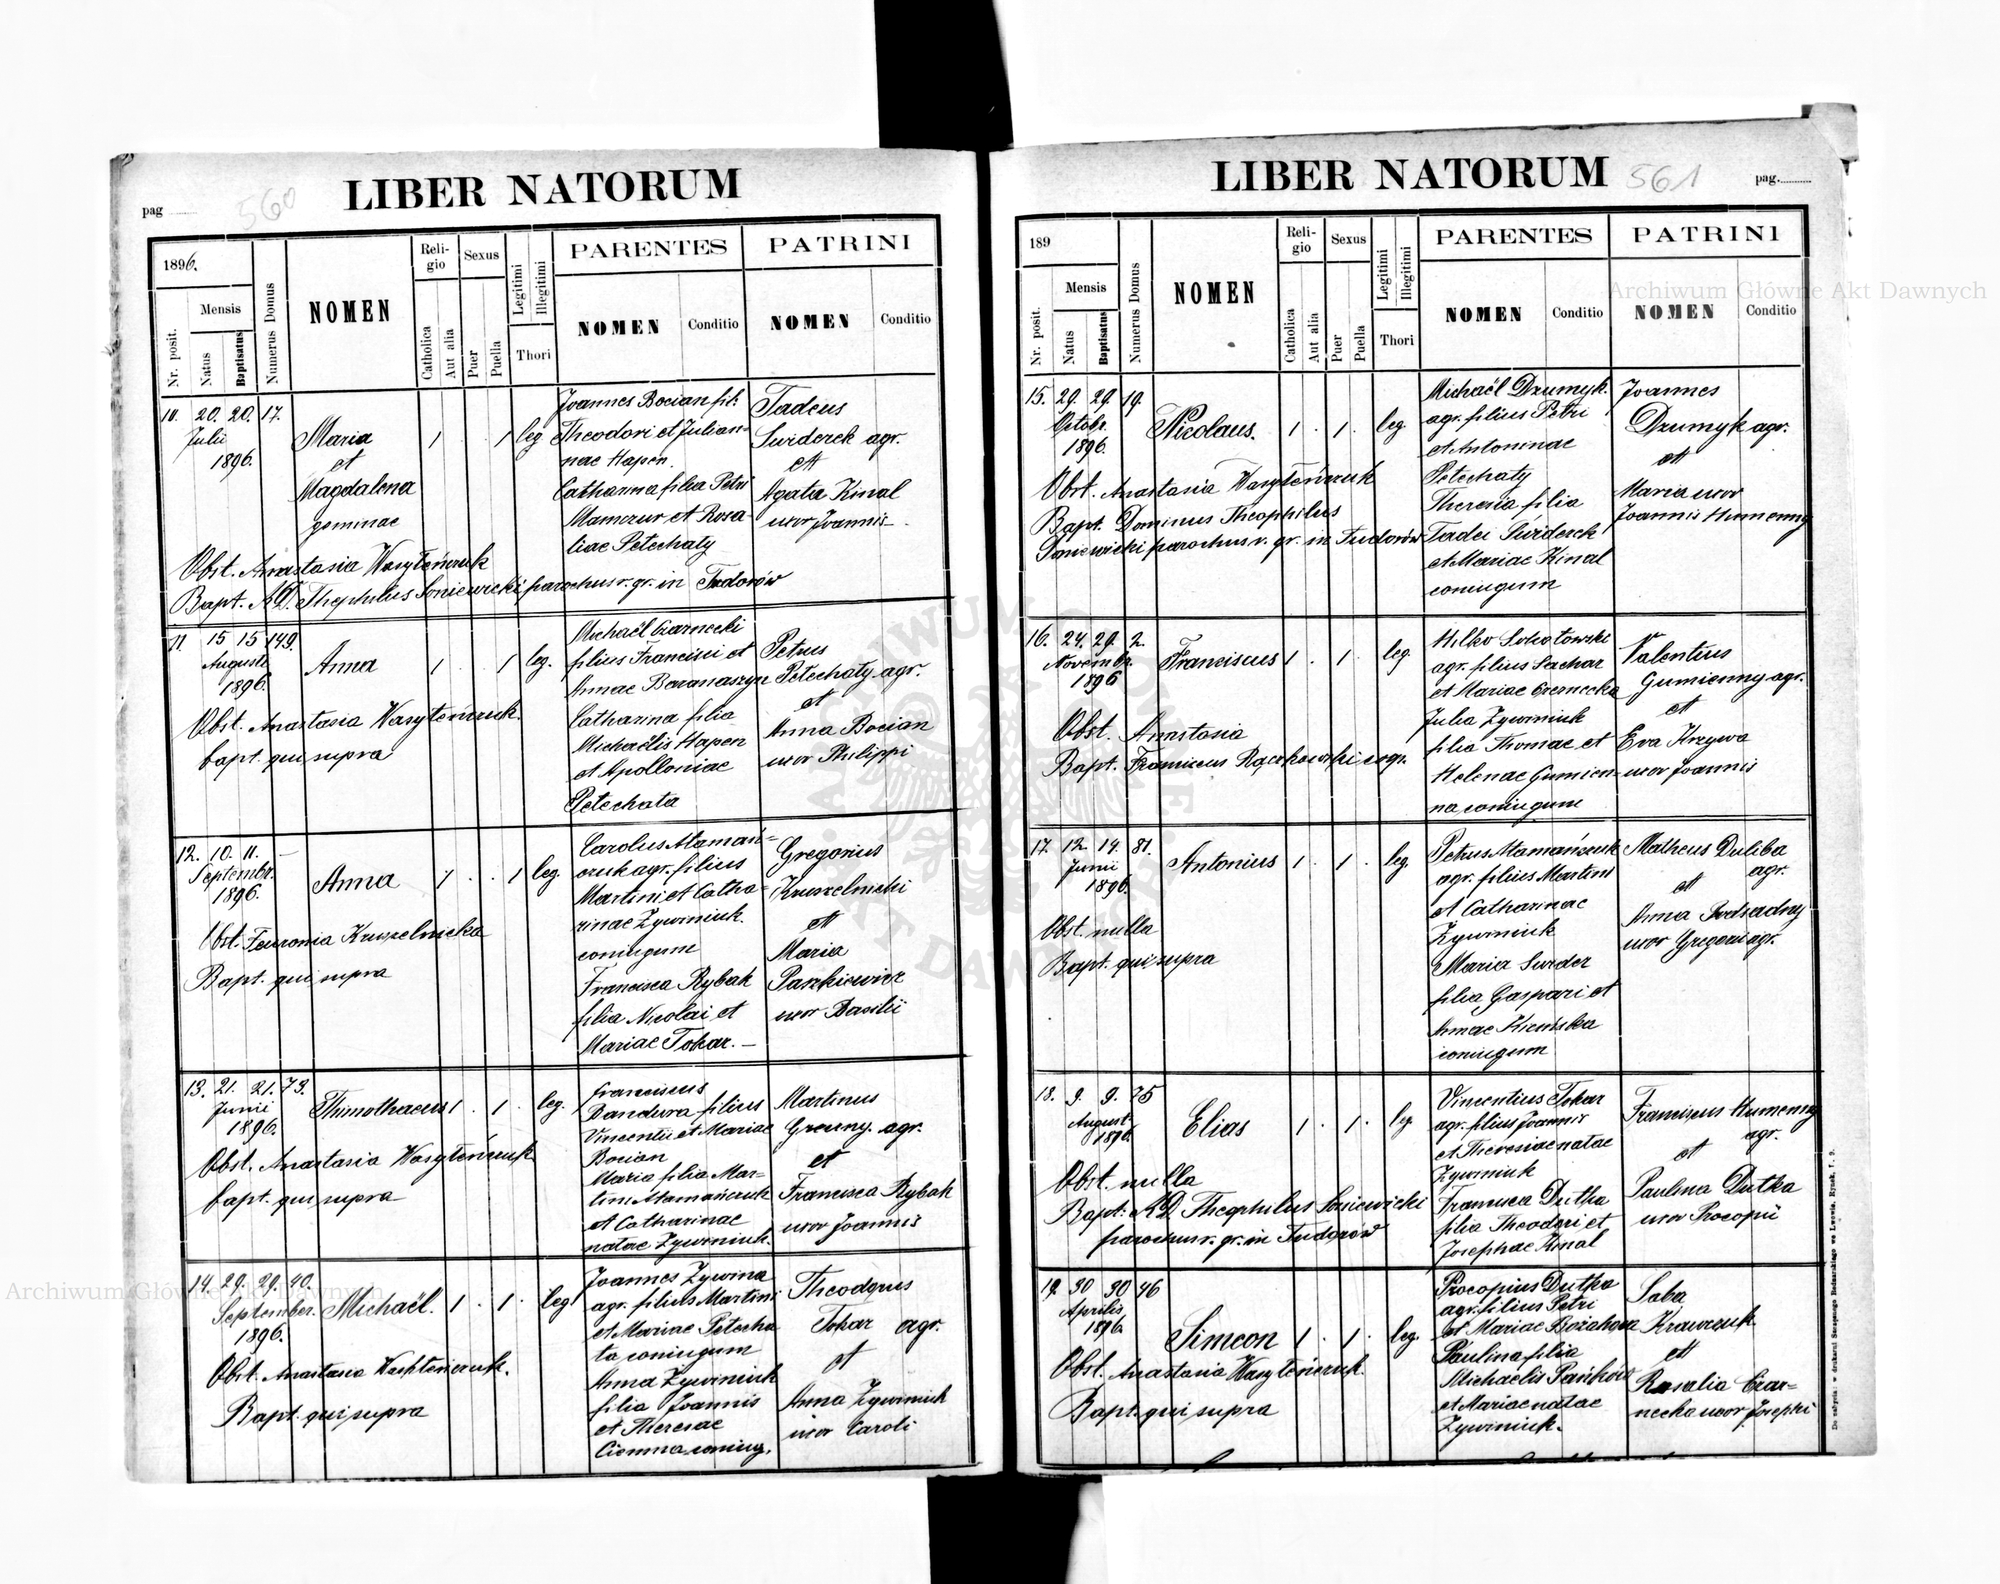 LIBER NATORUM
pag
560
1896.
Nr. posit.
Mensis
Natus
Baptisatus
Numerus Domus
NOMEN
Religio
Catholica
Aut alia
Sexus
Puer
Puella
Legitimi
Illegitimi
Thori
PARENTES
NOMEN
Conditio
PATRINI
NOMEN
Conditio
10. 20. 20. 17.
Julii
1896.
Maria
et
Magdalena
geminae
1 . . 1 leg
Joannes Bocian fil:
Theodori et Julian-
nae Hapen.
Catharina filia Petri
Mamczur et Rosa-
liae Petechaty
Tadeus
Swiderek agr.
et
Agata Kinal
uxor Joannis
Obst. Anastasia Wasyleńczuk
Bapt. AD. Theophilus Soniewicki parochus r. gr. in Tudorów
11. 15 15 149.
Augusti
1896.
Anna
1 . . 1 leg.
Michaël Czarnecki
filius Francisci et
Annae Baranaszyn
Catharina filia
Michaëlis Hapen
et Apolloniae
Petechata
Petrus
Petechaty agr.
et
Anna Bocian
uxor Philippi
Obst. Anastasia Wasyleńczuk.
bapt. qui supra
12. 10. 11. -
Septembr.
1896.
Anna
1 . . 1 leg.
Carolus Atamań-
czuk agr. filius
Martini et Catha-
rinae Zywiniuk.
coniugum
Francisca Rybak
filia Nicolai et
Mariae Tokar. -
Gregorius
Kruszelnicki
et
Maria
Paszkiewicz
uxor Basilii
Obst. Fewronia Kruszelnicka
Bapt. qui supra
13. 21. 21. 73.
Junii
1896.
Thimothaeus
1 . 1 . leg.
Franciscus
Bandura filius
Vincentii et Mariae
Bocian
Maria filia Mar-
tini Atamańczuk
et Catharinae
natae Zywiniuk.
Martinus
agr.
et
Francisca Rybak
uxor Joannis
Obst. Anastasia Wasyleńczuk
bapt. qui supra
14. 29. 29. 40.
September.
1896.
Michaël.
1 . 1 . leg
Joannes Zywina
agr. filius Martini
et Mariae Petecha
ta coniugum
Anna Zywiniuk
filia Joannis
et Theresae
Ciemna coniug.
Theodorus
Tokar agr.
et
Anna Zywiniuk
uxor Caroli
Obst. Anastasia Wasyleńczuk.
Bapt. qui supra
LIBER NATORUM
561
pag.
189
Nr. posit.
Mensis
Natus
Baptisatus
Numerus Domus
NOMEN
Religio
Catholica
Aut alia
Sexus
Puer
Puella
Legitimi
Illegitimi
Thori
PARENTES
NOMEN
Conditio
PATRINI
NOMEN
Conditio
15. 29. 29. 19.
Octobr.
1896.
Nicolaus.
1 . 1 . leg.
Michaël Dzumyk.
agr. filius Petri
et Antoninae
Petechaty
Theresia filia
Tadei Swiderek
et Mariae Kinal
coniugum
Joannes
Dzumyk agr.
et
Maria uxor
Joannis Humenny
Obst. Anastasia Wasyleńczuk
Bapt. Dominus Theophilus
Soniewicki parochus r. gr. in Tudorów
16. 24. 29. 2.
Novembr.
1896
Franciscus
1 . 1 . leg.
Hilko Sokotowski
agr. filius Sachar
et Mariae Czernecka
Julia Zywiniuk
filia Thomae et
Helenae Gumien-
na coniugum
Valentius
Gumienny agr.
et
Eva Krzywa
uxor Joannis
Obst. Anastasia
Bapt. Franciscus Rączkowski coop.
17. 12. 14. 81.
Junii
1896.
Antonius
1 . 1 . leg
Petrus Atamańczuk
agr. filius Martini
et Catharinae
Zywiniuk
Maria Swider
filia Gaspari et
Annae
coniugum
Matheus Duliba
agr.
et
Anna Podsadny
uxor Gregorii agr.
Obst. nulla
Bapt. qui supra
18. 9. 9. 75
August.
1896.
Elias
1 . 1 . leg
Vincentius Tokar
agr. filius Joannis
et Theresiae natae
Zywiniuk
Francisca Dutka
filia Theodori et
Josephae Kinal
Franciscus Humenny
agr.
et
Paulina Dutka
uxor Procopii
Obst. nulla
Bapt: AD. Theophilus Soniewicki
parochus r. gr. in Tudorów
19. 30 30 46
Aprilis
1896.
Simeon
1 . 1 . leg.
Procopius Dutka
agr. filius Petri
et Mariae Bożahora
Paulina filia
Michaelis Pańków
et Mariae natae
Zywiniuk.
Saba
Krawczuk
et
Rosalia Czar-
necka uxor Josephi
Obst. Anastasia Wasyleńczuk.
Bapt. qui supra
Archiwum Główne Akt Dawnych
Archiwum Główne Akt Dawnych